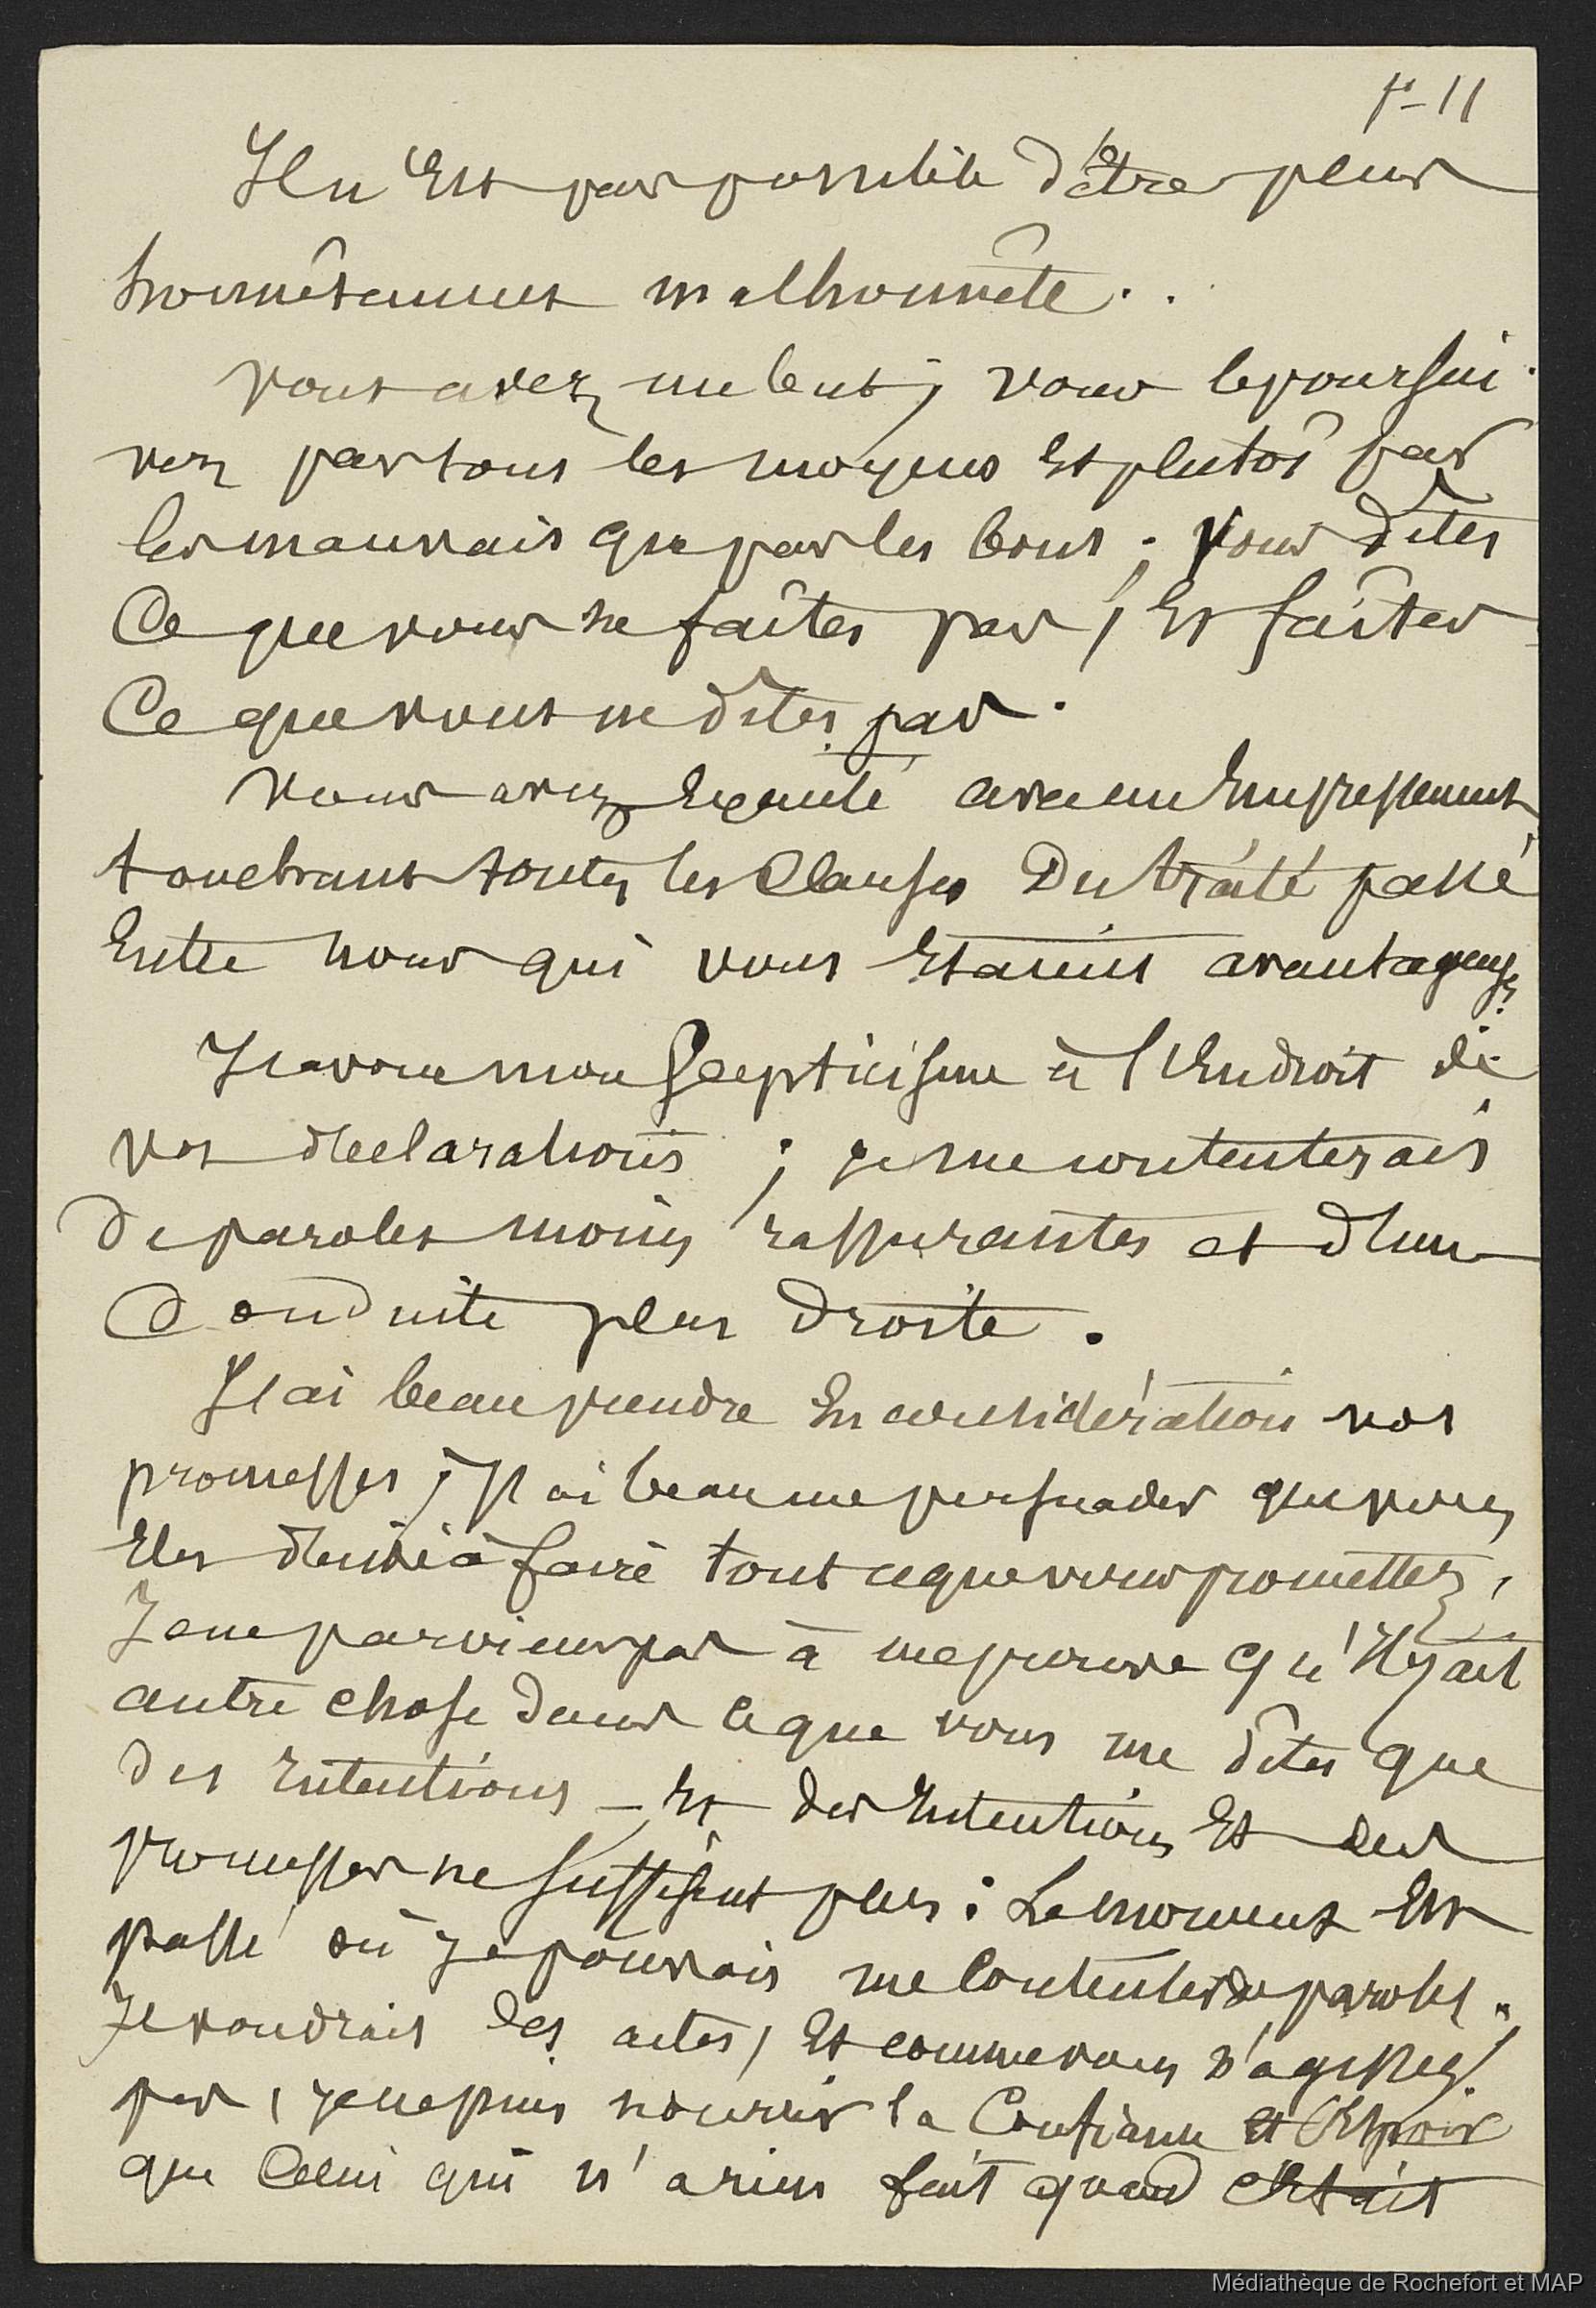 f°-11
Il n'est pas possible d'être plus
honnêtement malhonnête..
Vous avez un but, vous le poursui-
vez par tous les moyens et plutôt par
les mauvais que par les bons ; vous dites
ce que vous ne faites pas, et faites
ce que vous ne dites pas.
Vous avez exécuté avec un empressement
touchant toutes les clauses du traité passé
entre nous qui vous étaient avantageuses.
J'avoue mon scepticisme à l'endroit de
vos déclarations ; je me contenterais
de paroles moins rassurantes et d'une
conduite plus droite.
J'ai beau prendre en considération vos
promesses, j'ai beau me persuader que vous
êtes décidé à faire tout ce que vous promettez,
je ne parviens pas à me prouver qu'il y ait
autre chose dans ce que vous me dites que
des intentions - et des intentions et des
promesses ne suffisent plus : Le moment est
passé où je pouvais me contenter de paroles.
Je voudrais des actes, et comme vous n'agissez
pas, je ne puis nourrir la confiance et l'espoir
que celui qui n'a rien fait quand c'était